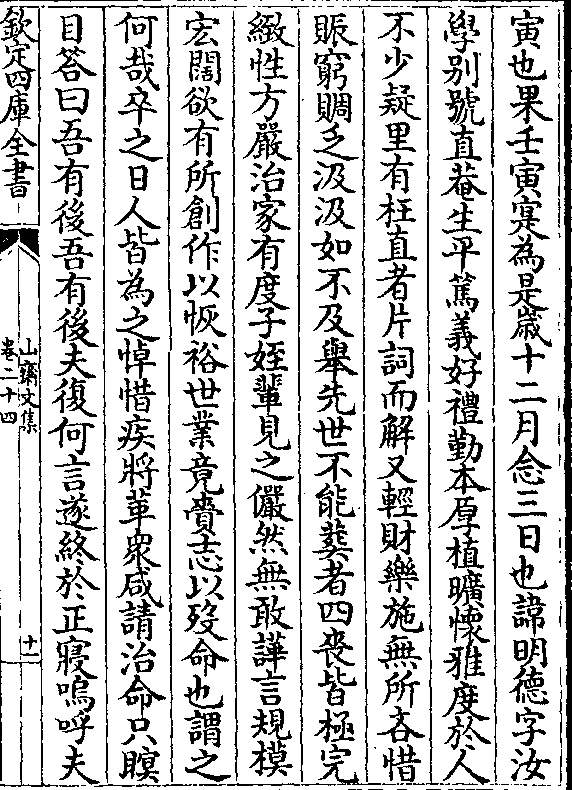 寅也果壬寅寔為是嵗十二月念三日也諱明德字汝
學别號直菴生平篤義好禮勤本厚植曠懷雅度於人
不少疑里有枉直者片詞而解又輕財樂施無所吝惜
賑窮賙乏汲汲如不及舉先世不能葬者四喪皆極完
緻性方嚴治家有度子姪輩見之儼然無敢譁言規模
宏闊欲有所創作以恢裕世業竟賫志以歿命也謂之
何哉卒之日人皆為之悼惜疾將革衆咸請治命只瞑
目答曰吾有後吾有後夫復何言遂終於正寢嗚呼夫
欽定四庫全書
山齋文集
卷二十四
十一